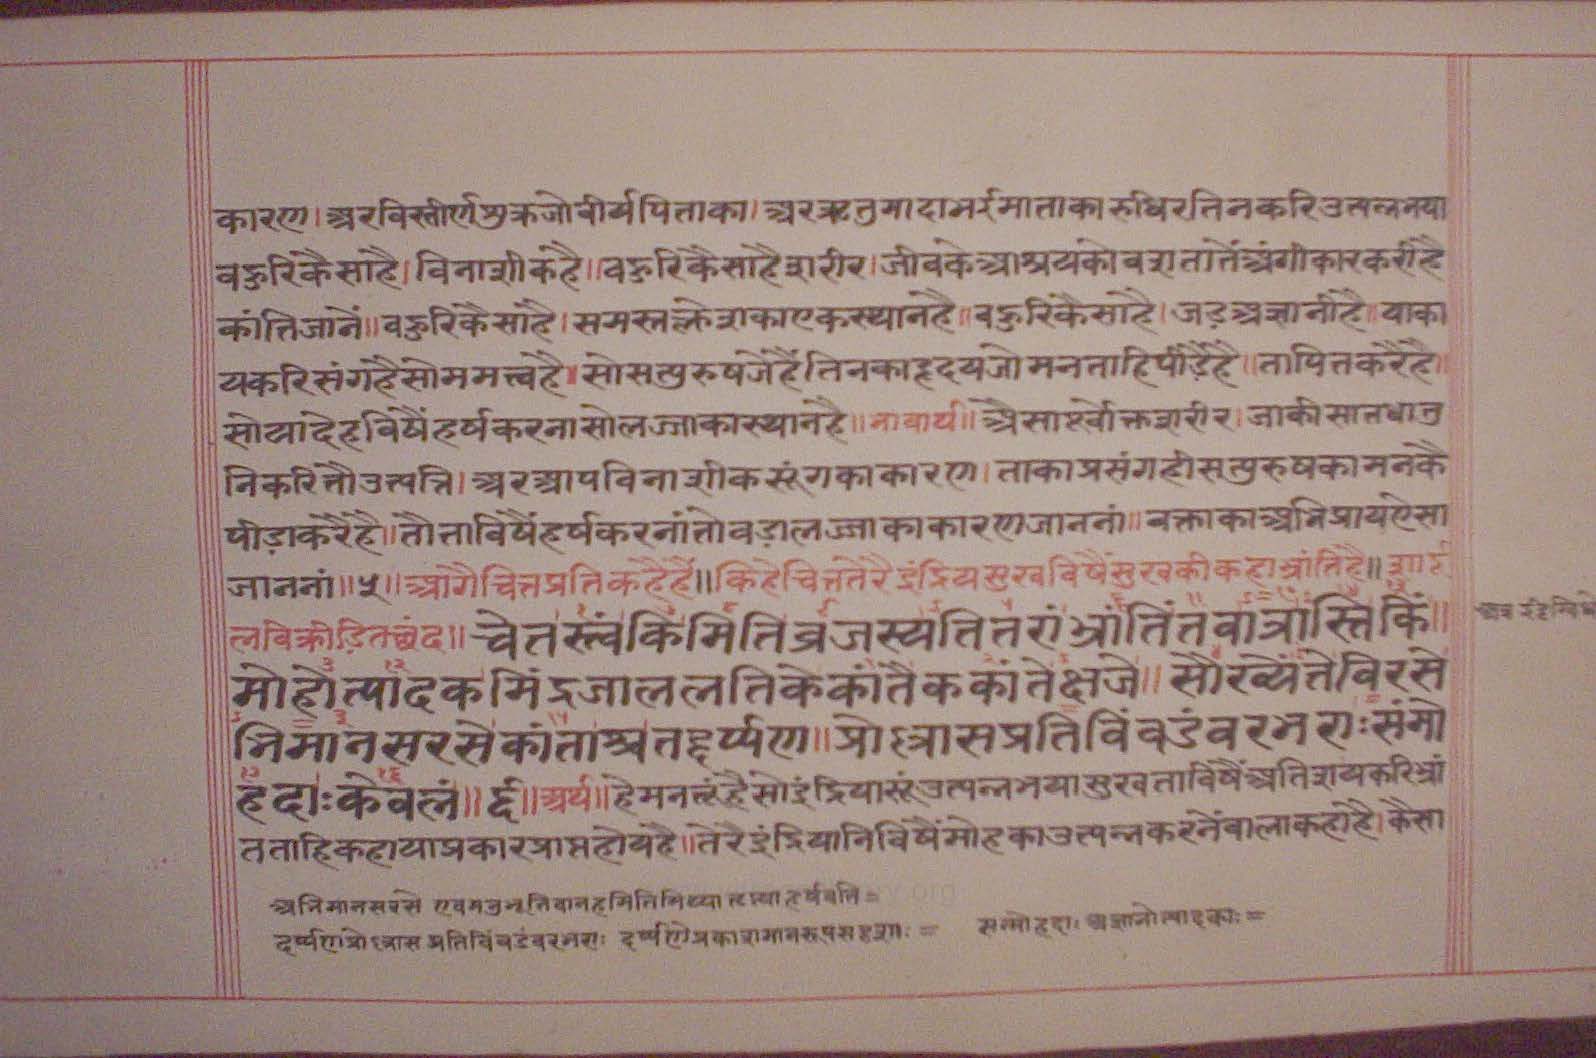 कारण। अरविस्तीर्णशुक्रजोवीर्यपिताका। अरऋतुमादाभईमाताकारुधिरतिनकरिउत्पन्नभया
बहुरिकैसाहै। विनाशीकहै॥ बहुरिकैसाहैशरीर। जीवकेआश्रयकोवशतातैंअंगीकारकरीहै
कांतिजानें॥ बहुरिकैसाहै। समस्तक्लेशकाएकस्थानहै॥ बहुरिकैसाहै। जडअज्ञानीहै॥ याका
यकरिसंगहैसोममत्वहै॥ सोसत्पुरुषजेहैंतिनकाहृदयजोमनताहिपीडैहै॥ तापितकरैहै॥
सोयादेहविषैंहर्षकरनासोलज्जाकास्थानहै॥ भावार्थ॥ अैसापूर्वोक्तशरीर। जाकीसातधातु
निकरितौउत्पत्ति। अरआपविनाशीकसंगकाकारण। ताकाप्रसंगहीसत्पुरुषकामनकै
पीडाकरैहै॥ तौताविषैंहर्षकरनांतोबडालज्जाकाकारणजाननां॥ वक्ताकाअभिप्रायऐसा
जाननां॥ ५॥ आगैचित्तप्रतिकहैहैं॥ किहेचित्ततेरैइंद्रियसुखविषैंसुखकीकहाभ्रांतिहै॥ शार्दू
लविक्रीडितछंद॥ चेतस्त्वंकिमितिव्रजस्यतितरांभ्रांतिंतवात्रास्तिकिं॥
मोहोत्पादकमिंद्रजाललतिकेकांतैककांतेक्षजे॥ सौख्येंतेविरसे
भिमानसरसेकांताश्चतद्दर्प्पण॥ प्रोल्लासप्रतिविंवडंवरभराःसंमो
हदाःकेवलं॥ ६॥ अर्थ॥ हेमनतूंहैसोइंद्रियासूंउत्पन्नभयासुखताविषैंअतिशयकरिभ्रां
तताहिकहायाप्रकारप्राप्तहोयहै॥ तेरैइंद्रियानिविषैंमोहकाउत्पन्नकरनेंवालाकहोहै। कैसा
अभिमानसरसे एवमनुभूतिवानहमितिमिथ्या हर्षवति=
दर्प्पणप्रोल्लासप्रतिविंवडंवरभराः दर्प्पणेप्रकाशमानरूपसदृशाः = सम्मोहदाः अज्ञानोत्पादकाः=